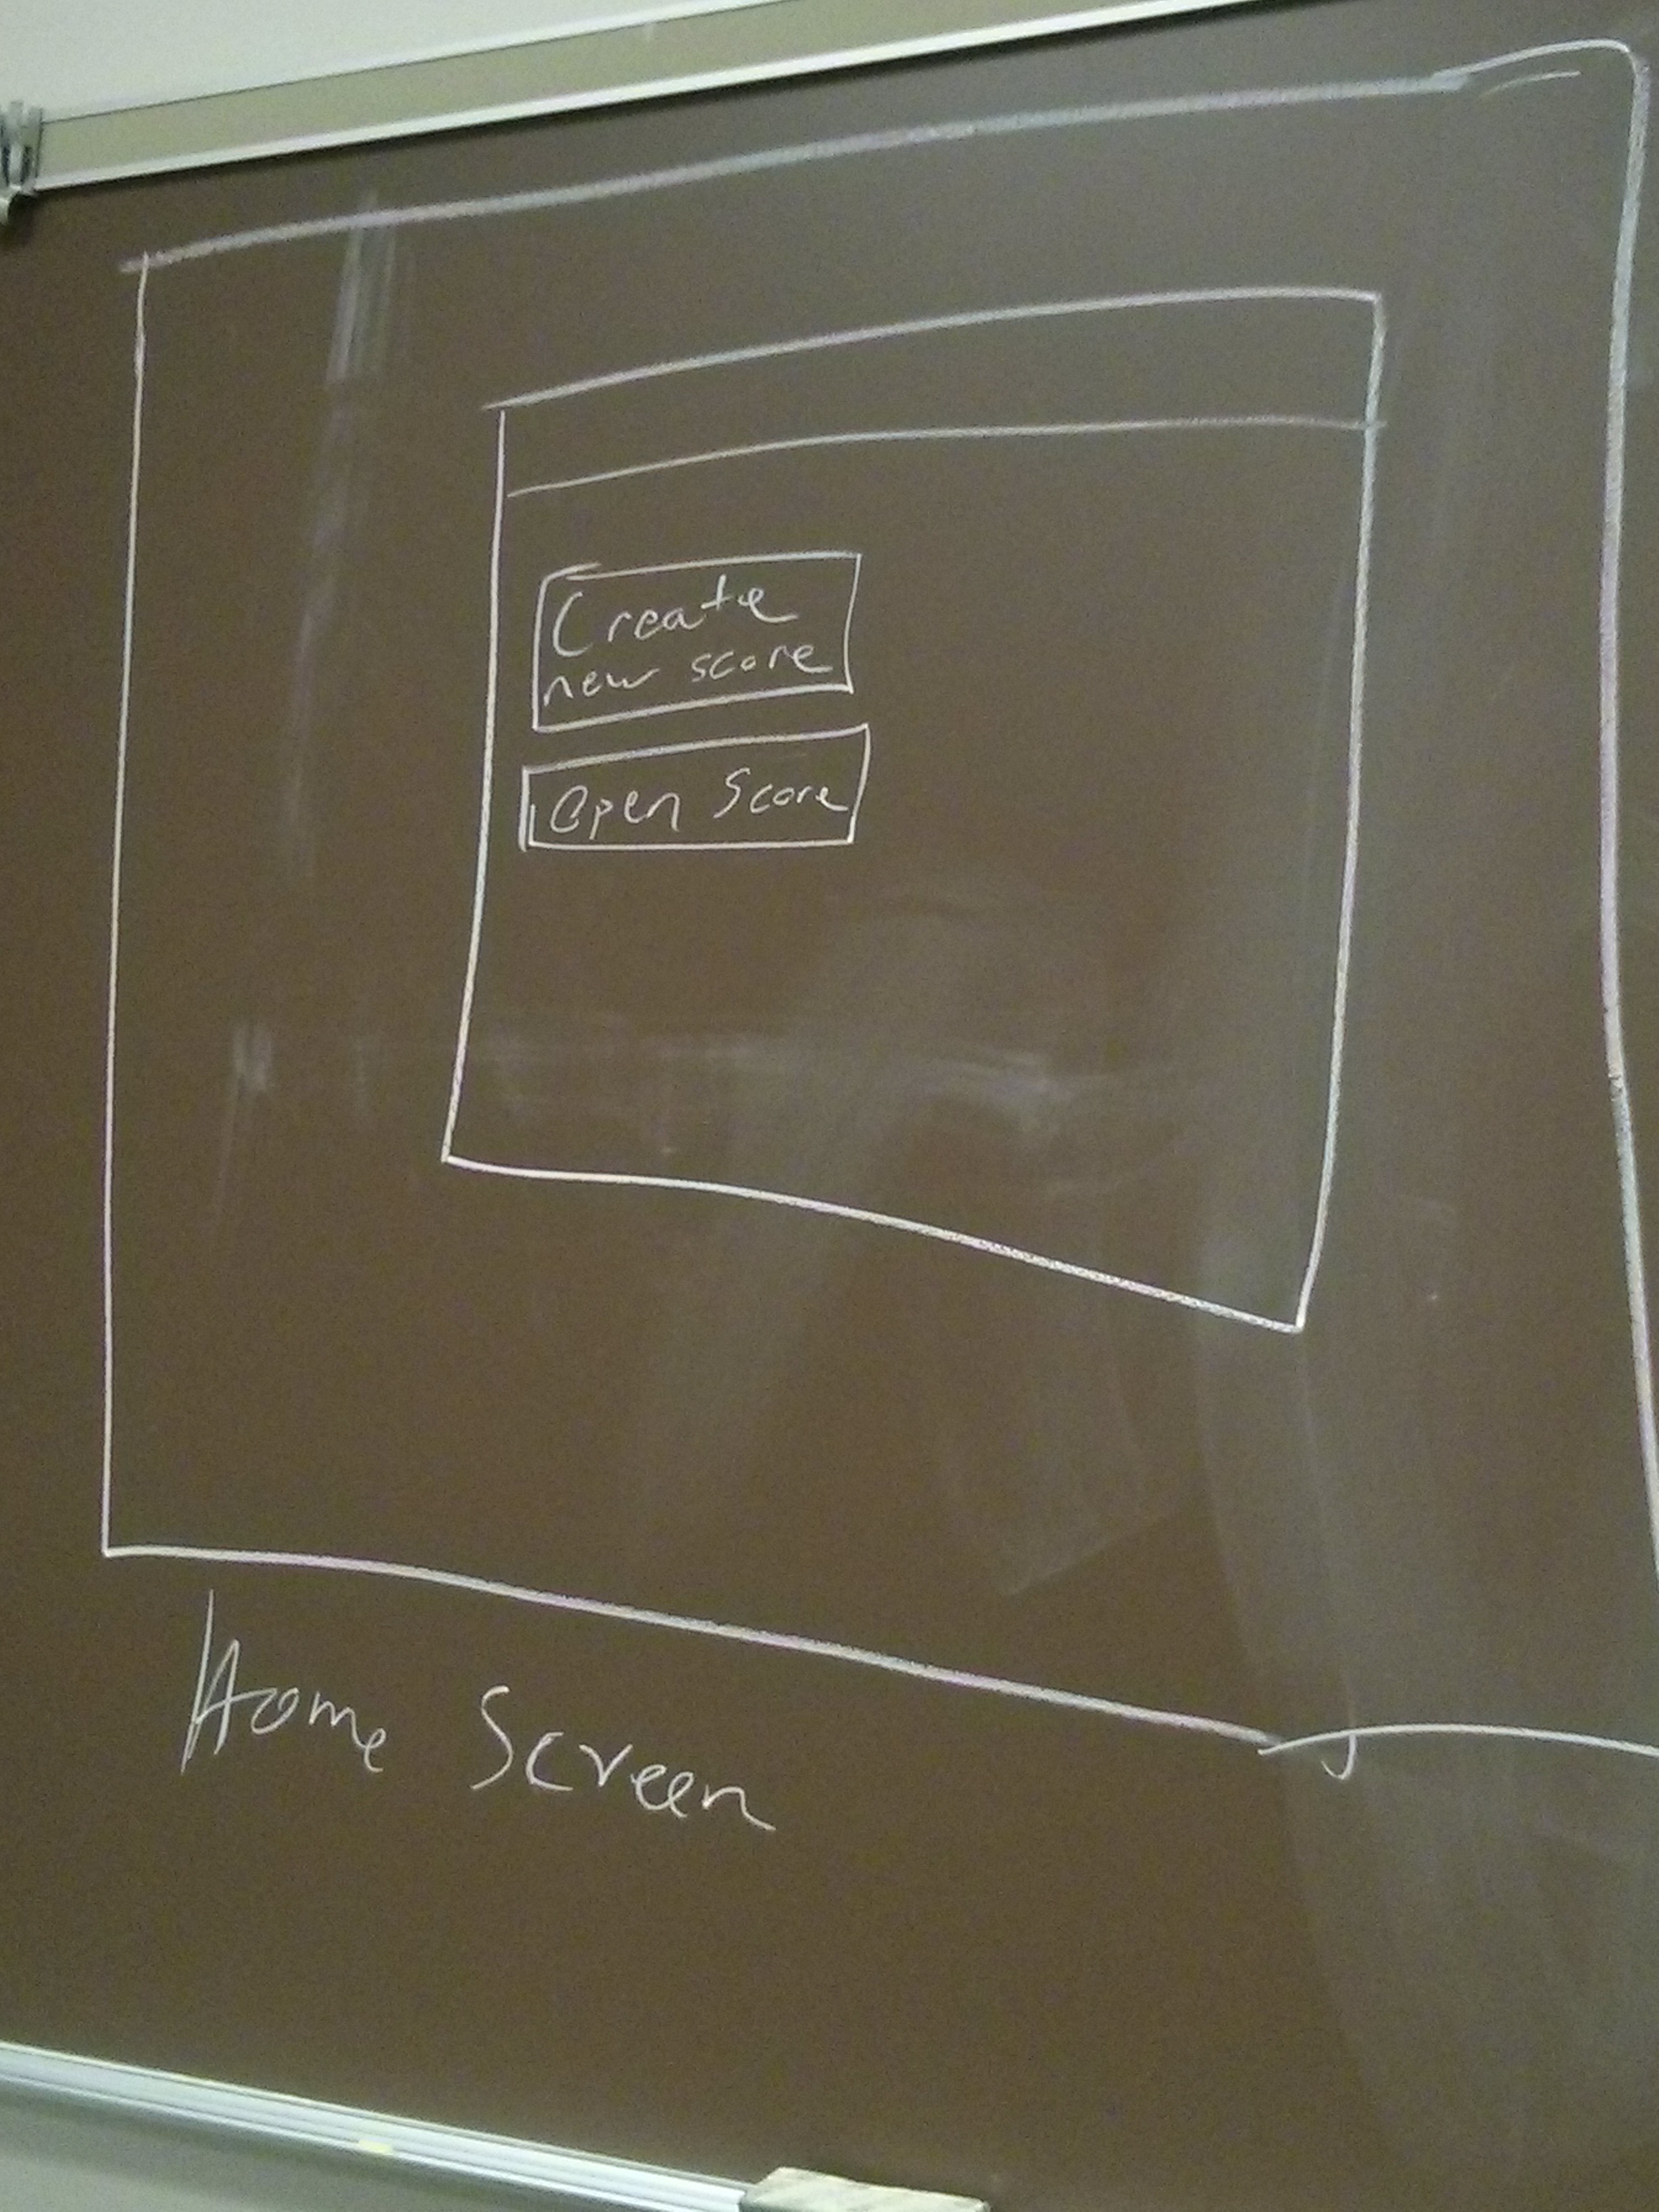 Create
new score
Open Score
Home Screen